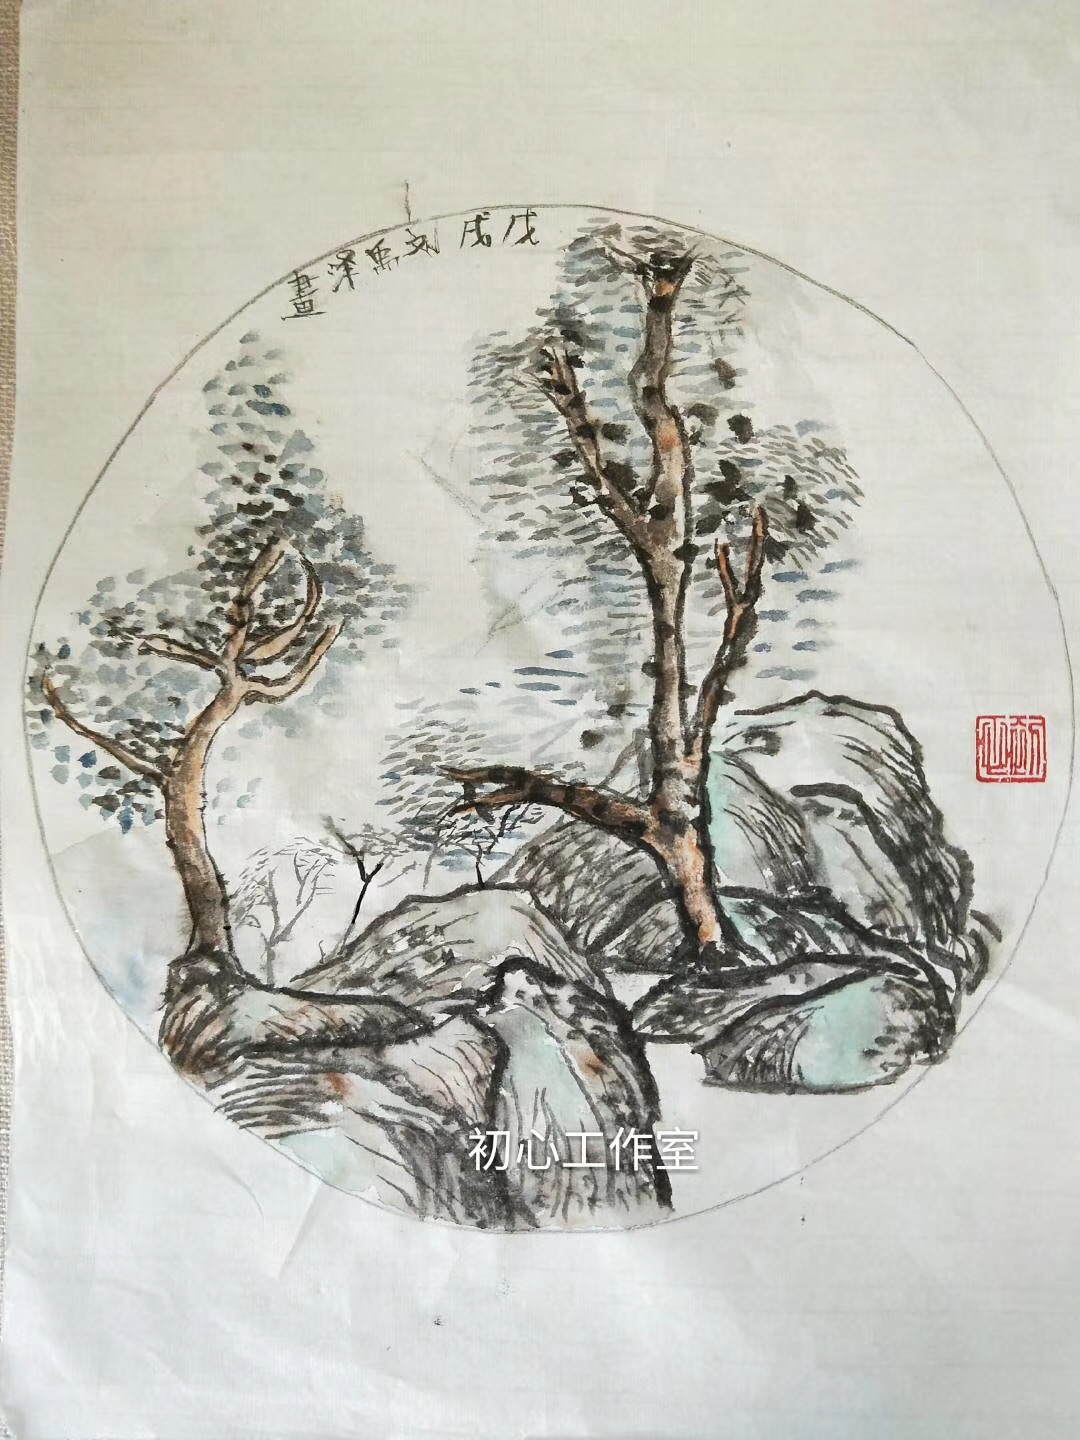 戊戌刘禹泽畫
初心工作室